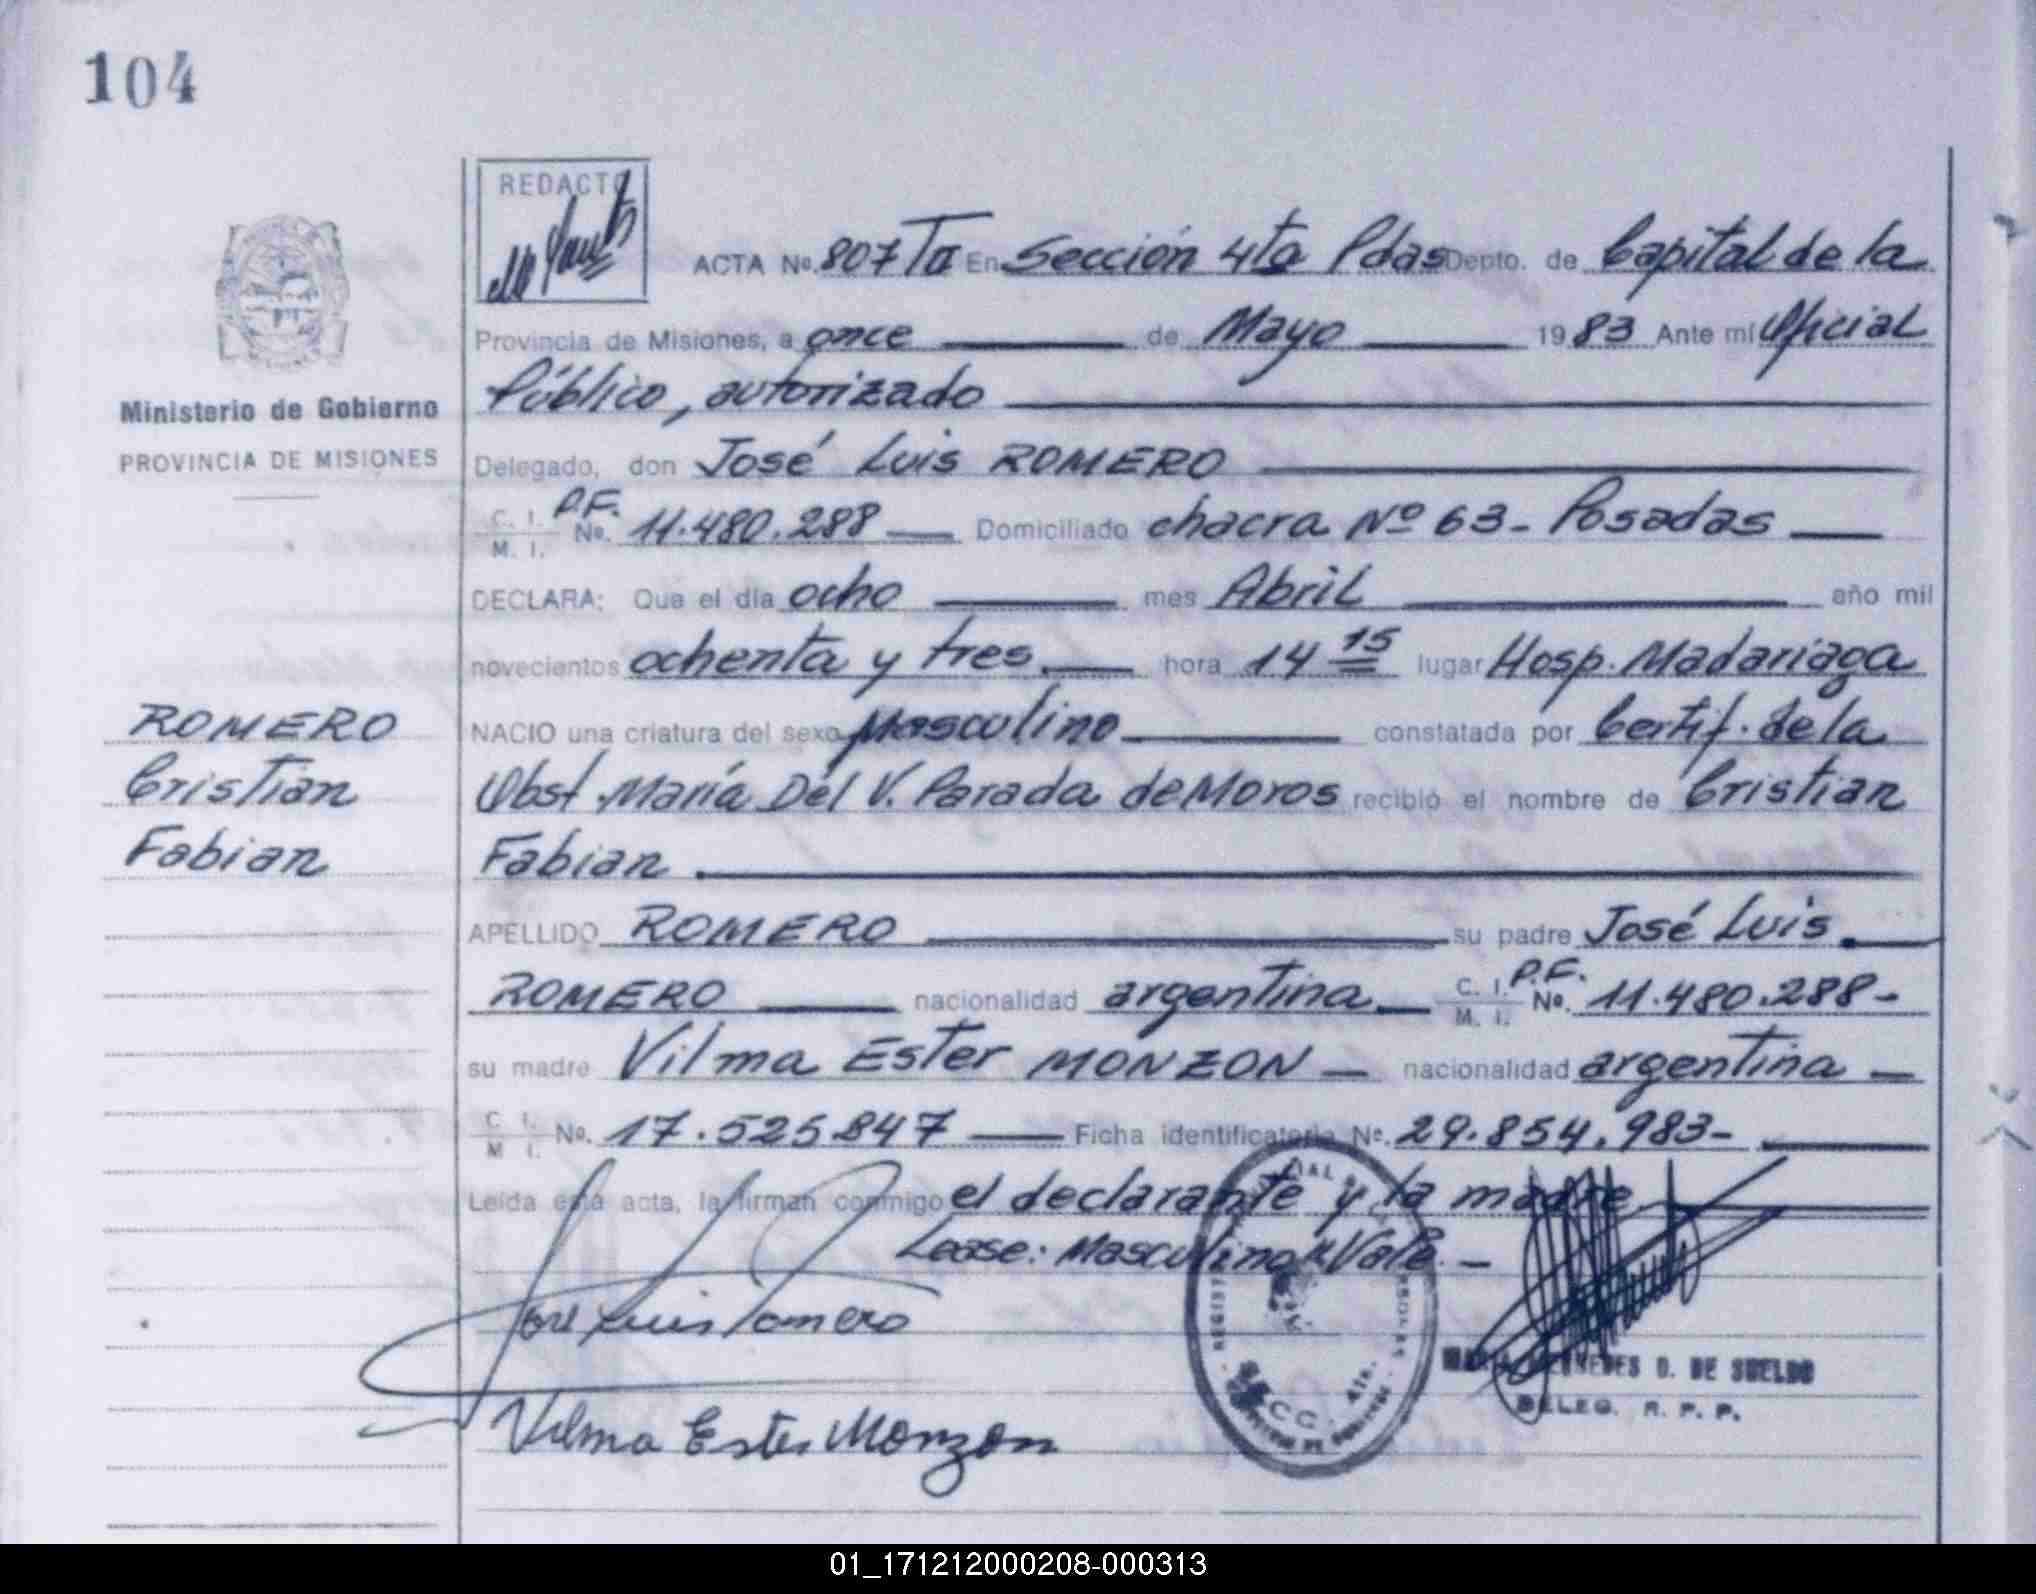 104
REDACTO
ACTA No. 807 Tª En Sección 4ta Pdas Depto. de Capital de la
Provincia de Misiones, a once de Mayo 1983 Ante mí Oficial
Público, autorizado
Ministerio de Gobierno
PROVINCIA DE MISIONES
Delegado, don José Luis ROMERO
C. I. M. I. P.F. No. 11.480.288 Domiciliado chacra Nº 63 - Posadas
DECLARA: Que el día ocho mes Abril año mil
novecientos ochenta y tres. hora 14 15 lugar Hosp. Madariaga
ROMERO
Cristian
Fabian
NACIO una criatura del sexo Masculino constatada por Certif. de la
Obst. María Del V. Parada de Moros recibió el nombre de Cristian
Fabian
APELLIDO ROMERO su padre José Luis
ROMERO nacionalidad argentina C. I. M. I. P.F. No. 11.480.288-
su madre Vilma Ester MONZON nacionalidad argentina
C. I. M. I. No. 17.525847 Ficha identificatoria No. 29.854.983-
Leída esta acta, la firman conmigo el declarante y la madre
Lease: Masculino Vale.
Jose Luis Romero
SECC. 4ta.
DE SUELDO
DELEG. R. P. P.
Vilma Ester Monzon
01_171212000208-000313